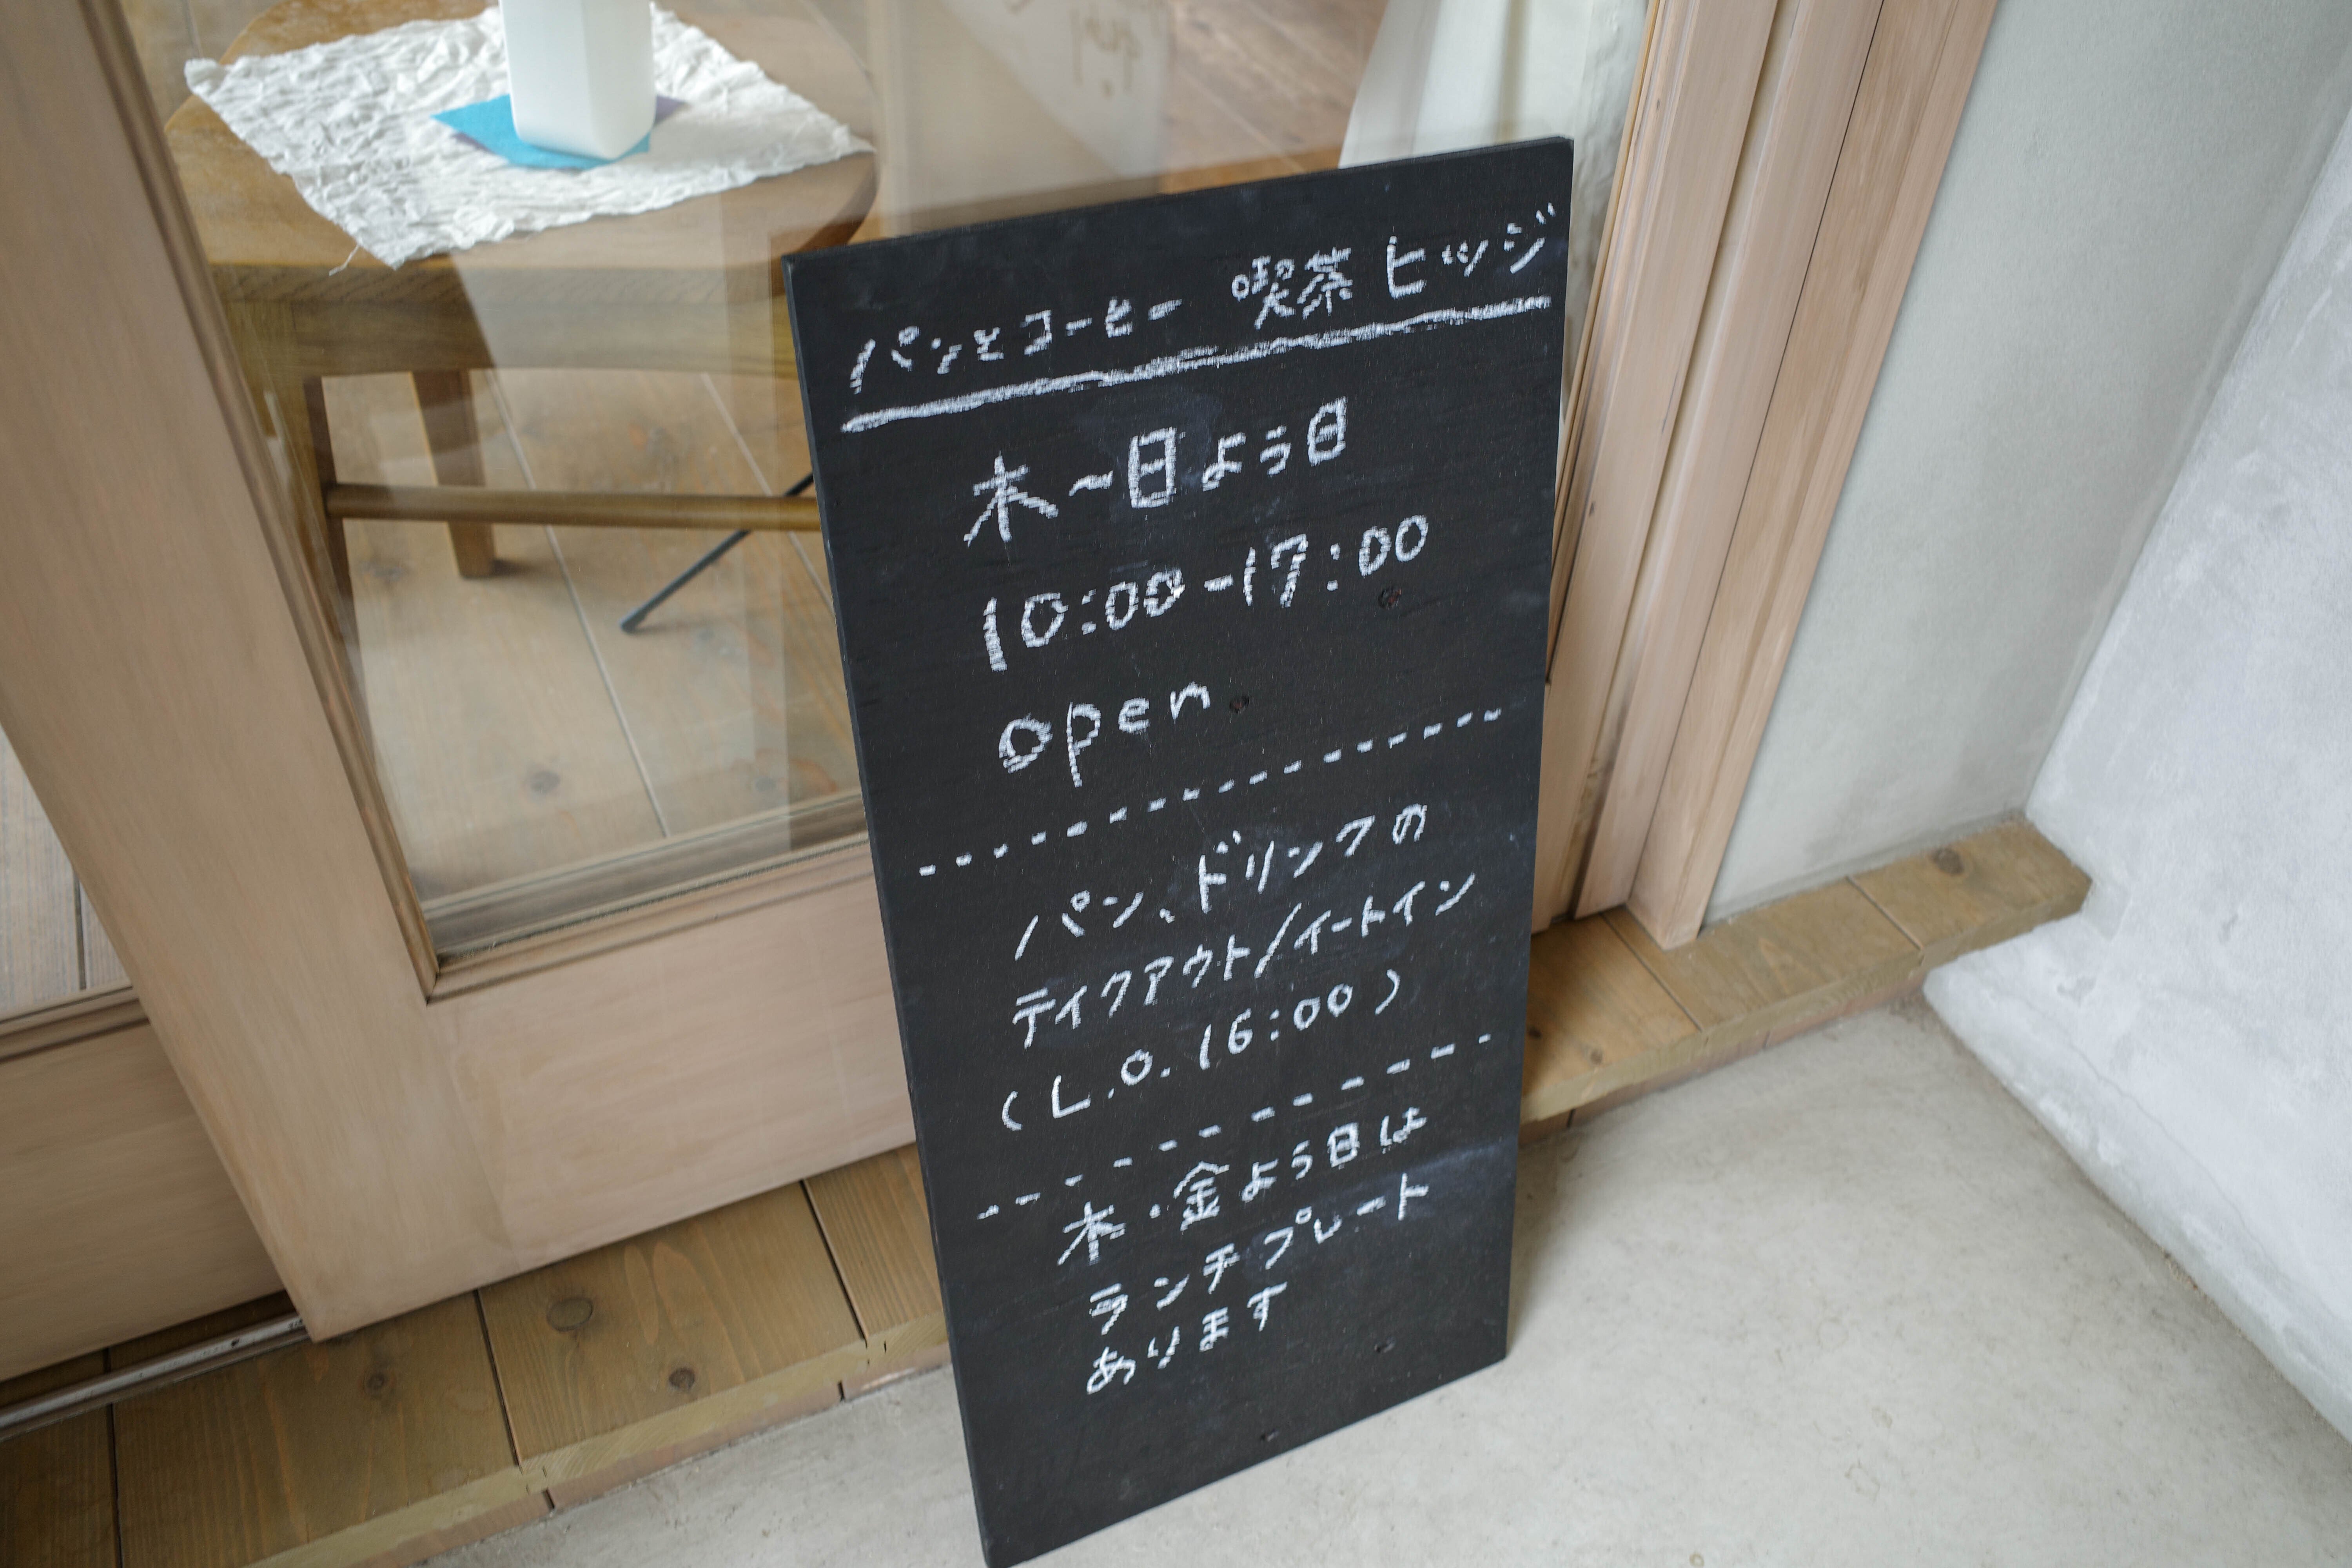 パンとコーヒー 喫茶 ヒツジ
木〜日よう日
10:00-17:00
open
パン、ドリンクの
テイクアウト/イートイン
(L.O.16:00)
木・金よう日は
ランチプレート
あります